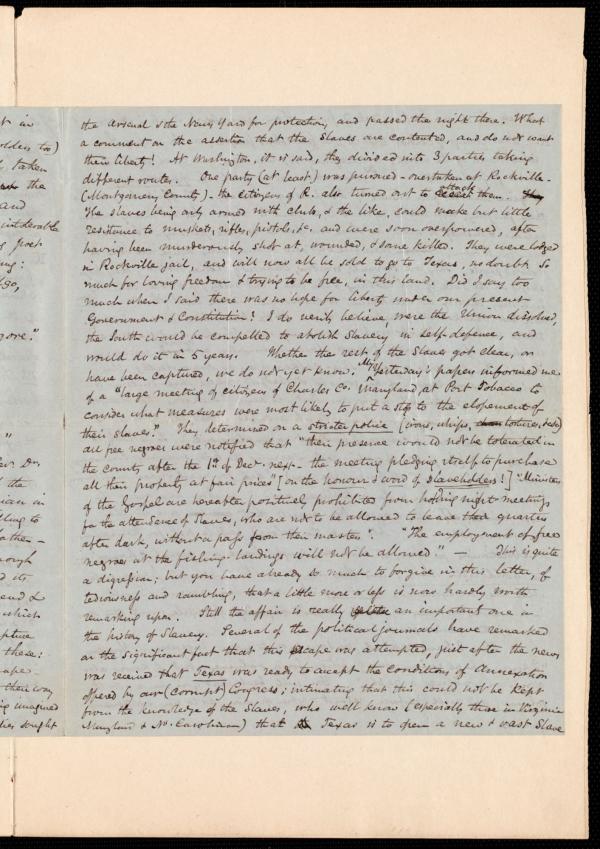 the Arsenal & the Navy Yard for protection, and passed the night there. What
a comment on the assertion that the slaves are contented, and do not want
their liberty! At Washington, it is said, they divided into 3 parties taking
different routes. One party (at least) was pursued - overtaken at Rockville -
(Montgomery County) - the citizens of R. also turned out to attack them.
The slaves being only armed with clubs, & the like, could make but little
resistance to muskets, rifles, pistols, &c. and were soon overpowered, after
having been murderously shot at, wounded, & some killed. They were lodged
in Rockville jail, and will now all be sold to go to Texas, no doubt. So
much for loving freedom & trying to be free, in this land. Did I say too
much when I said there was no hope for liberty under our present
Government & Constitution? I do verily believe, were the Union dissolved,
the South would be compelled to abolish Slavery in self-defence, and
would do it in 5 years. Whether the rest of the Slaves got clear, or
have been captured, we do not yet know. Yesterday's papers informed me
of a "large meeting of citizens of Charles Co. Maryland, at Port Tobacco to
consider what measures were most likely to put a stop to the elopement of
their slaves." They determined on a stricter police (irons, whips, tortures, &c.)
all free negroes were notified that "their presence would not be tolerated in
the county after the 1st of Decr. next - the meeting pledging itself to purchase
all their property at fair prices" [on the honour & word of slaveholders!] "Ministers
of the Gospel are hereafter positively prohibited from holding night-meetings
for the attendance of slaves, who are not to be allowed to leave their quarters
after dark, without a pass from their master." "The employment of free
negroes at the fishing-landings will not be allowed." — This is quite
a digression; but you have already so much to forgive in this letter, of
tediousness and rambling, that a little more or less is now hardly worth
remarking upon. Still the affair is really an important one in
the history of Slavery. Several of the political journals have remarked
on the significant fact that this escape was attempted, just after the news
was received that Texas was ready to accept the conditions of Annexation
offered by our (corrupt) Congress; intimating that this could not be kept
from the knowledge of the slaves, who well know (especially those in Virginia
Maryland & No. Carolina) that Texas is to open a new & vast Slave